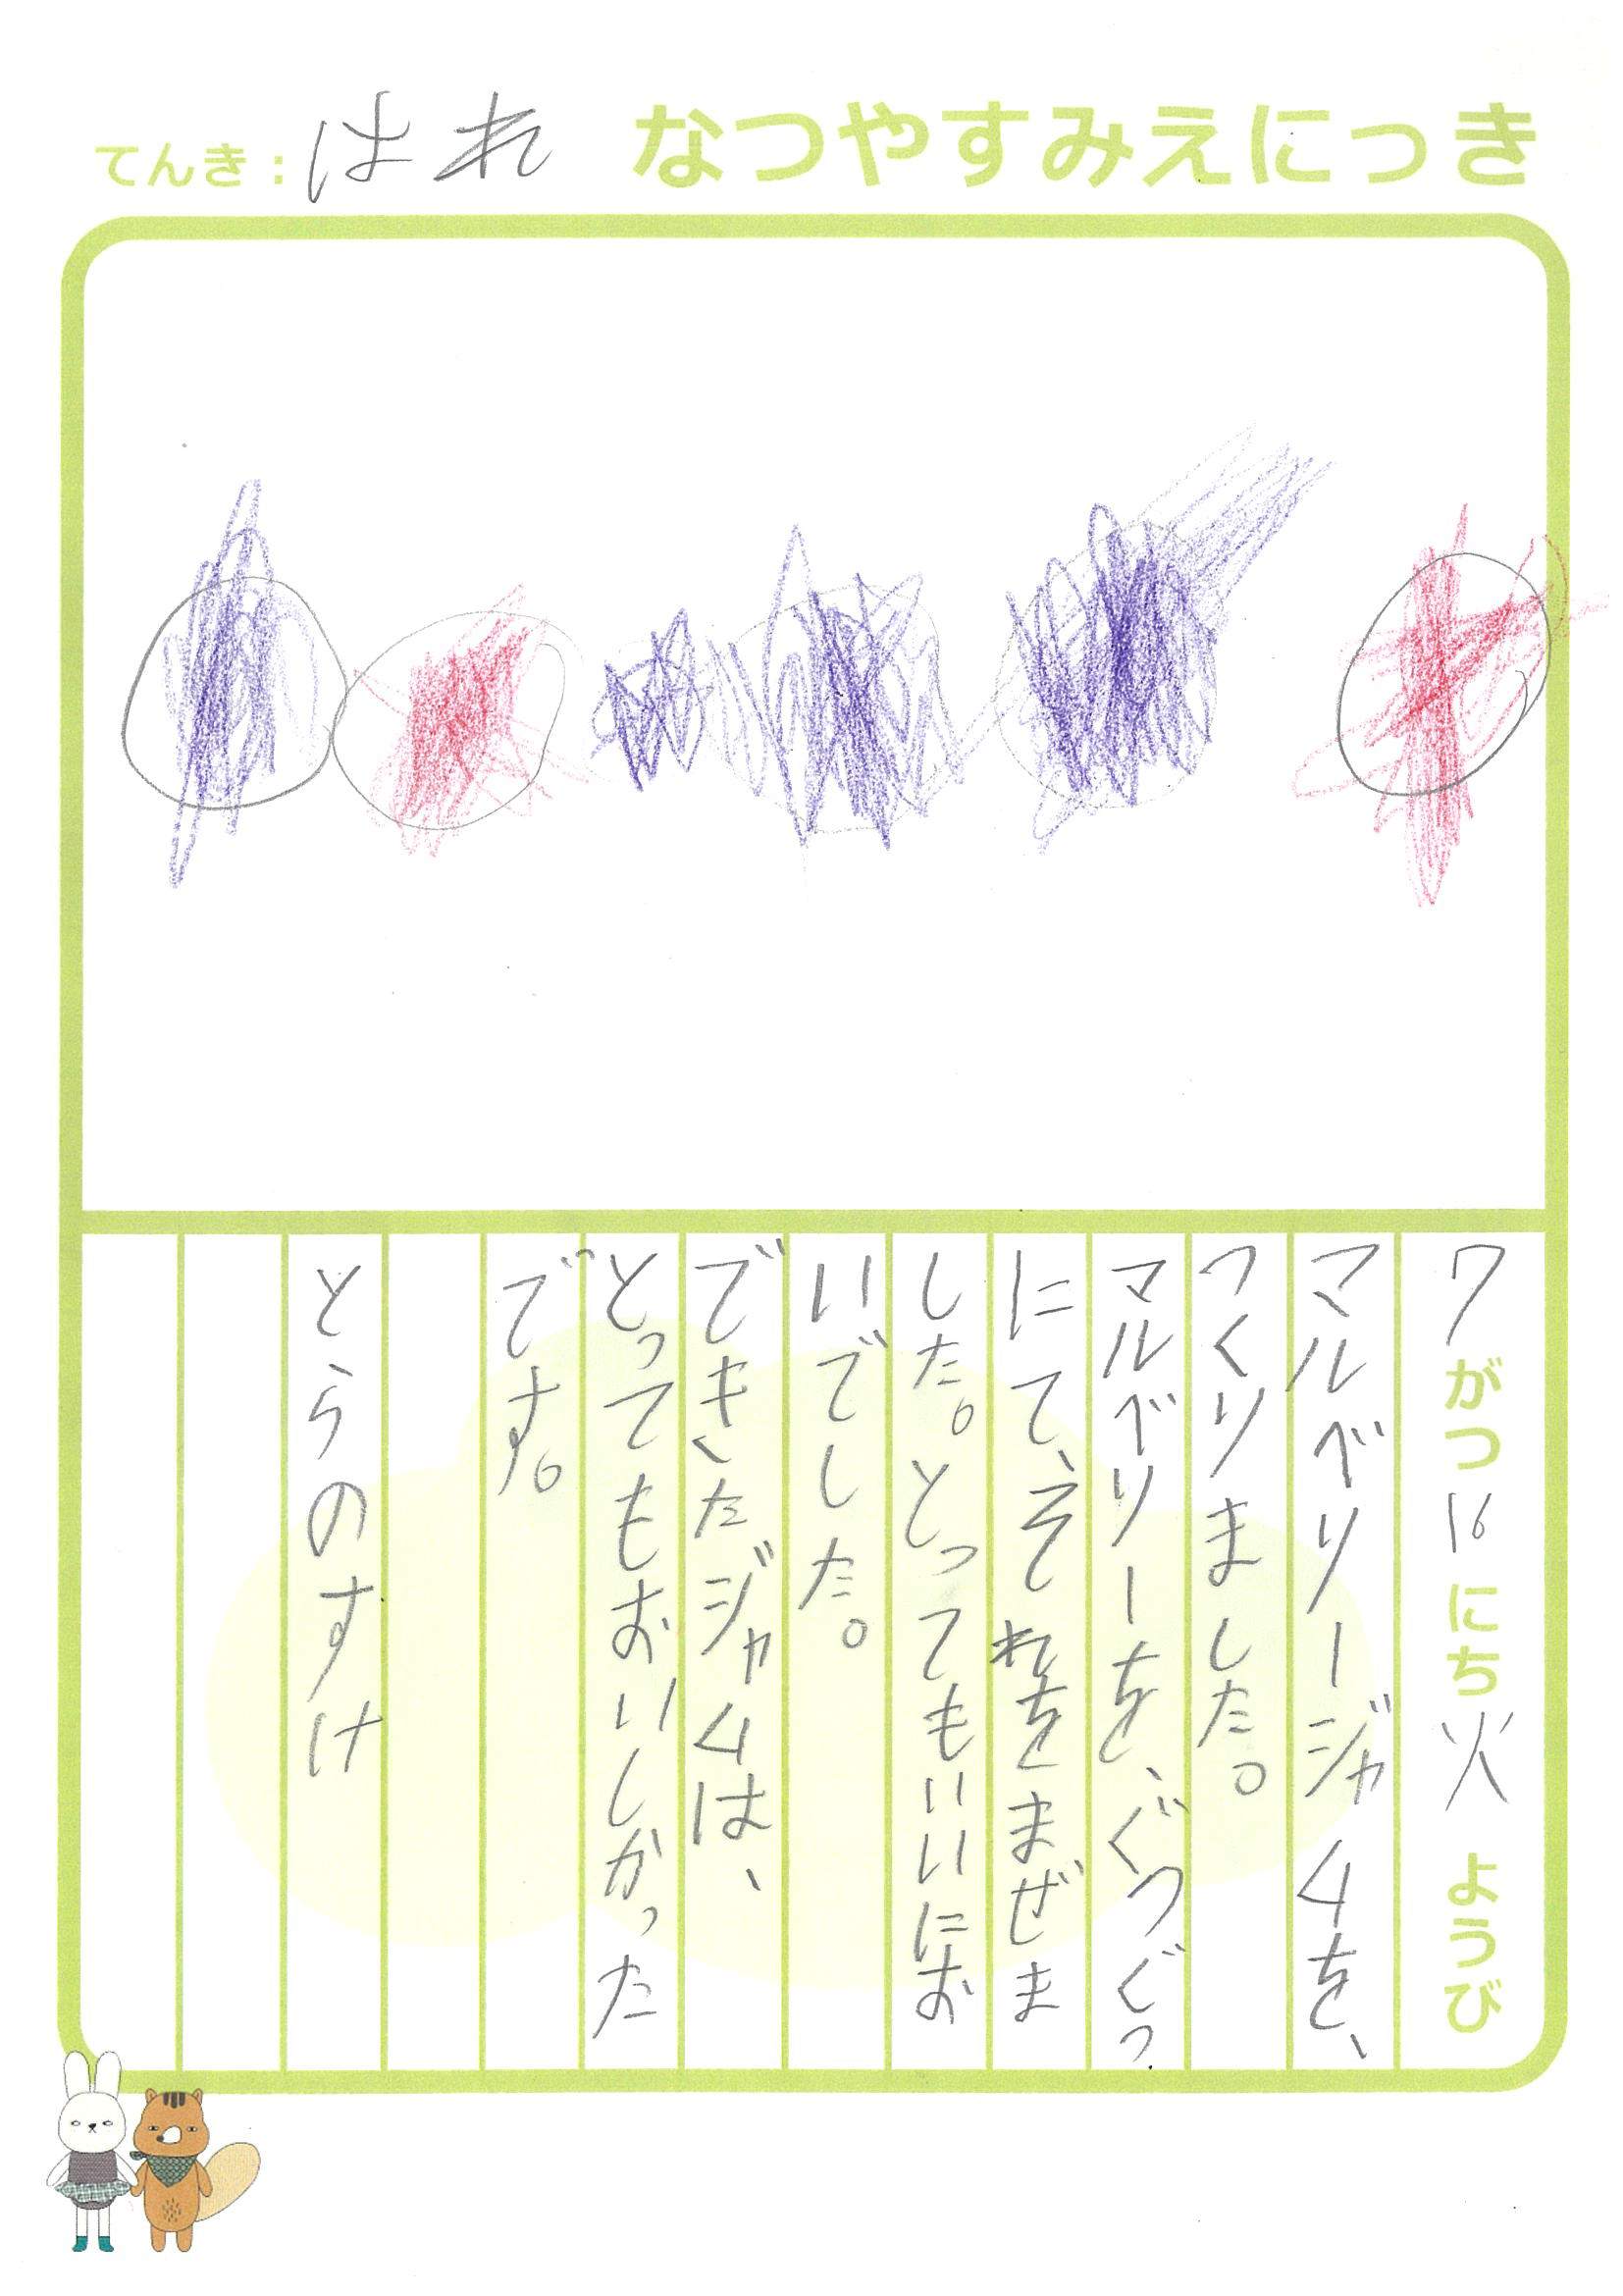 なつやすみえにっき
てんき：はれ
7がつ16にち火ようび
マルベリージャムを、
つくりました。
マルベリーを、ぐつぐつ
にて、それをまぜま
した。とってもいいにお
いでした。
できたジャムは、
とってもおいしかった
です。
とらのすけ